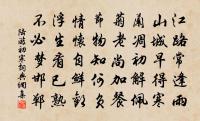 江路常逢雨
山城早得寒
蘭凋初解佩
菊老尚加餐
節物知何負
情懷自鮮歡
浮生看已熟
不必夢邯鄲
陸游初寒詞典網